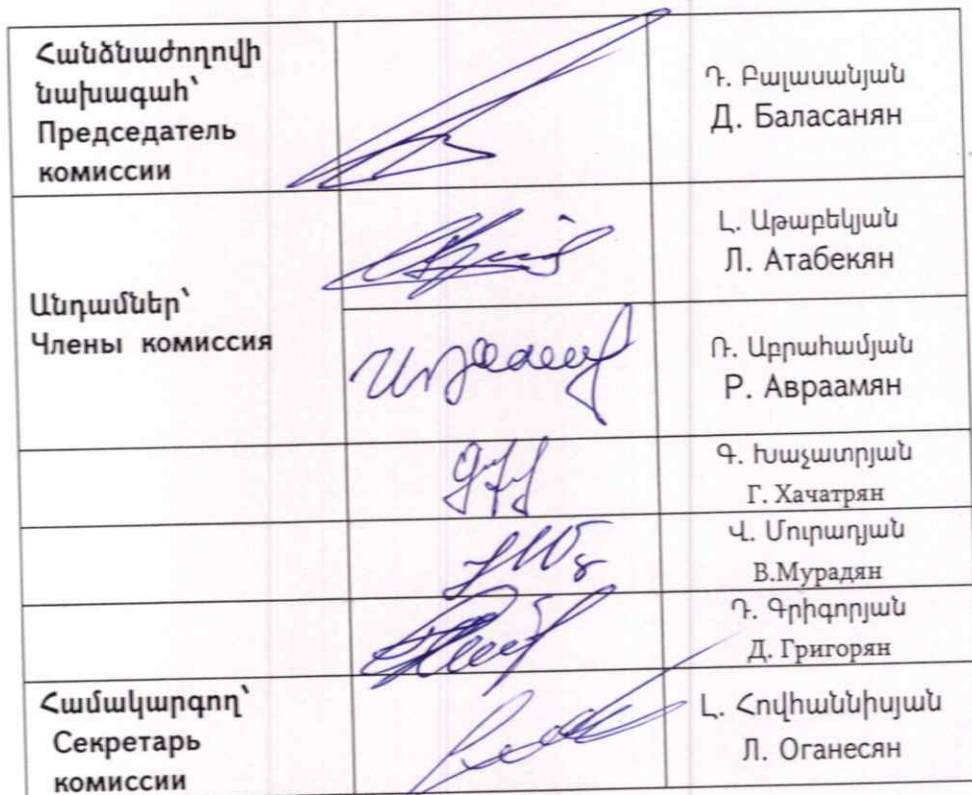 Հանձնաժողովի
նախագահ՝
Председатель
комиссии
Դ. Բալասանյան
Д. Баласанян
Անդամներ՝
Члены комиссия
Լ. Աթաբեկյան
Л. Атабекян
Ռ. Աբրահամյան
Р. Авраамян
Գ. Խաչատրյան
Г. Хачатрян
Վ. Մուրադյան
В.Мурадян
Դ. Գրիգորյան
Д. Григорян
Համակարգող՝
Секретарь
комиссии
Լ. Հովհաննիսյան
Л. Оганесян